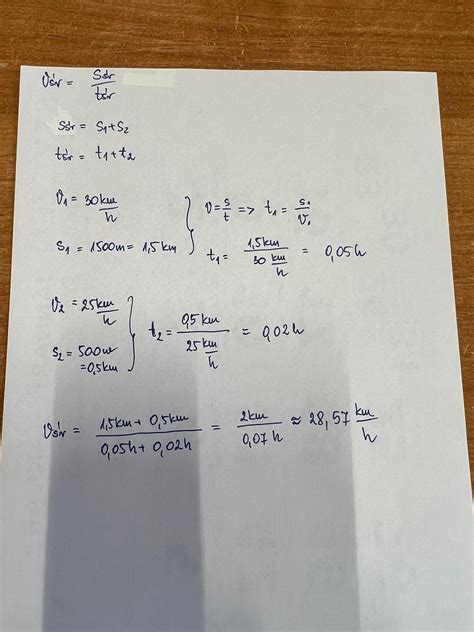 Vśr = sśr / tśr
sśr = s₁ + s₂
tśr = t₁ + t₂
V₁ = 30 km/h
s₁ = 1500m = 1,5 km
v = s/t => t₁ = s₁/v₁
t₁ = 1,5 km / 30 km/h = 0,05 h
V₂ = 25 km/h
s₂ = 500m
= 0,5 km
t₂ = 0,5 km / 25 km/h = 0,02 h
Vśr = 1,5 km + 0,5 km / 0,05 h + 0,02 h = 2 km / 0,07 h ≈ 28,57 km/h